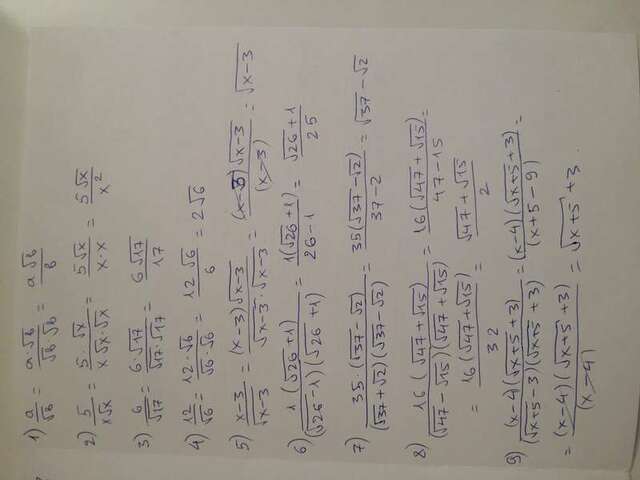 1) a/√b = a·√b/√b·√b = a√b/b
2) 5/x√x = 5·√x/x√x·√x = 5√x/x·x = 5√x/x²
3) 6/√17 = 6·√17/√17·√17 = 6√17/17
4) 12/√6 = 12·√6/√6·√6 = 12√6/6 = 2√6
5) x-3/√x-3 = (x-3)√x-3/√x-3·√x-3 = (x-3)√x-3/(x-3) = √x-3
6) 1(√26+1)/(√26-1)(√26+1) = 1(√26+1)/26-1 = √26+1/25
7) 35·(√37-√2)/(√37+√2)(√37-√2) = 35(√37-√2)/37-2 = √37-√2
8) 16(√47+√15)/(√47-√15)(√47+√15) = 16(√47+√15)/47-15 =
= 16(√47+√15)/32 = √47+√15/2
9) (x-4)(√x+5+3)/(√x+5-3)(√x+5+3) = (x-4)(√x+5+3)/(x+5-9) =
= (x-4)(√x+5+3)/(x-4) = √x+5+3.